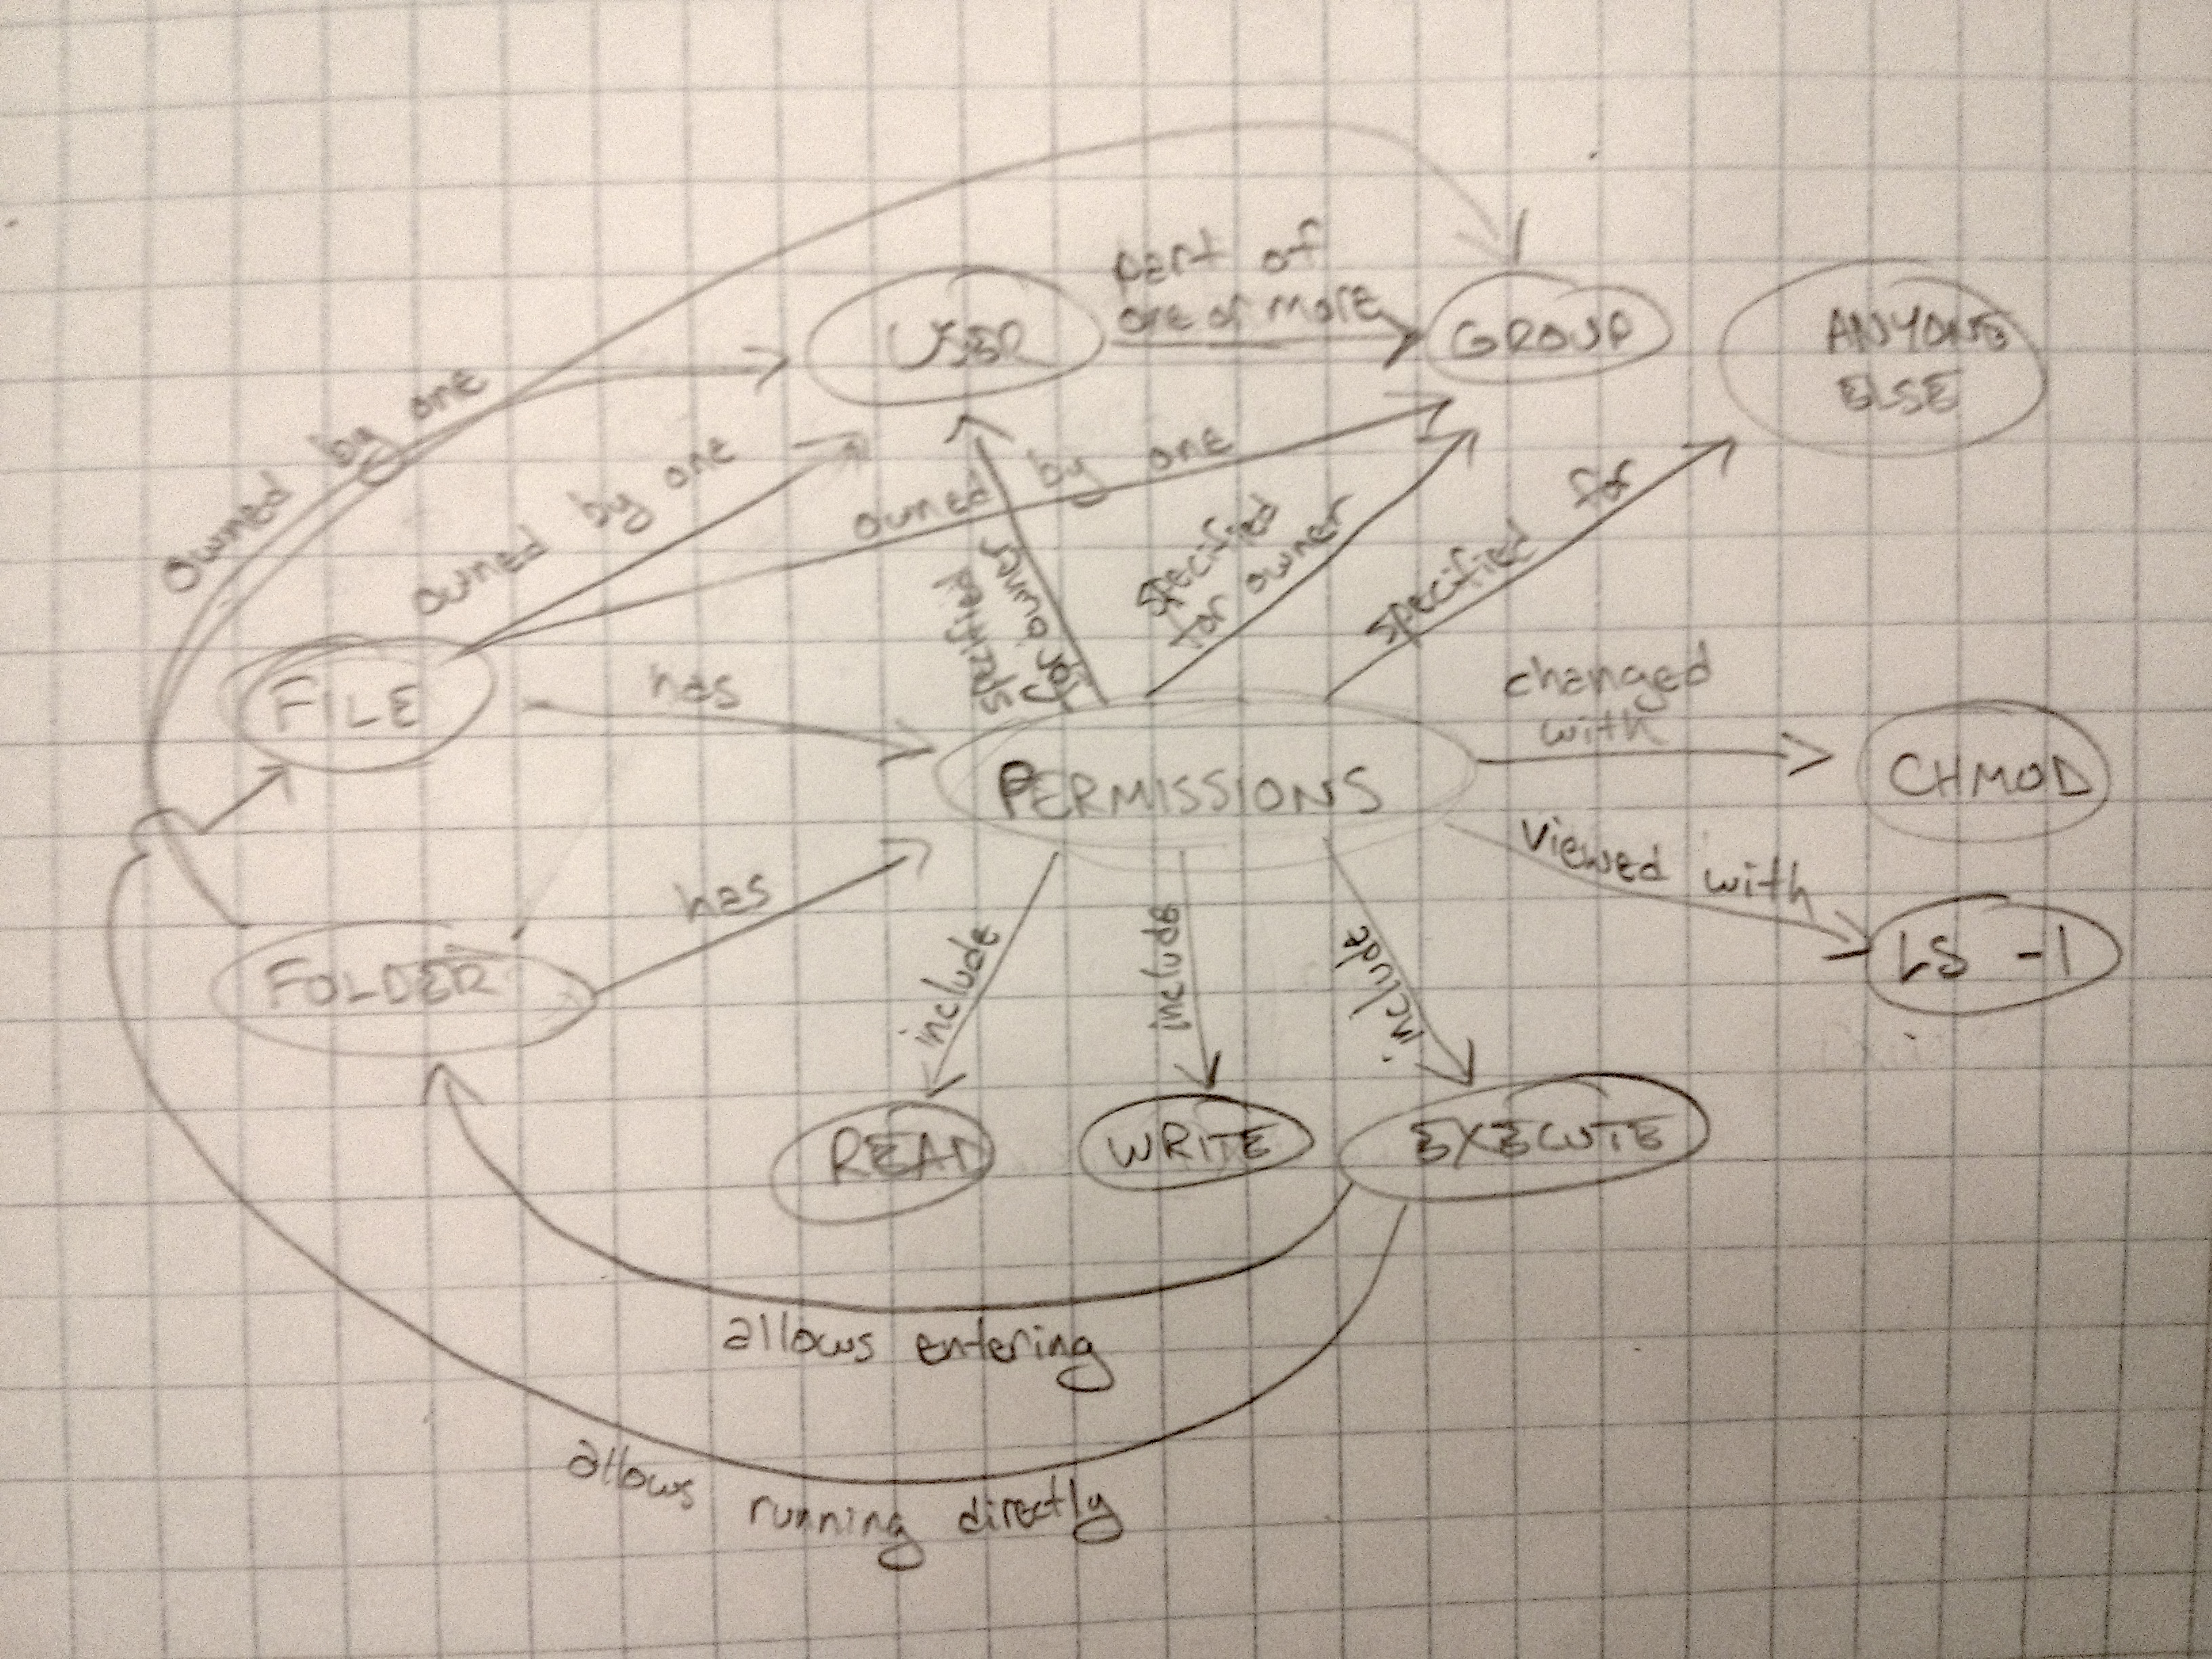 part of
one or more
USER
GROUP
ANYONE
ELSE
owned by one
owned by one
owned by one
specified
for owner
specified
for owner
specified for
FILE
has
changed
with
PERMISSIONS
CHMOD
viewed with
has
FOLDER
LS -l
include
include
include
READ
WRITE
EXECUTE
allows entering
allows running directly